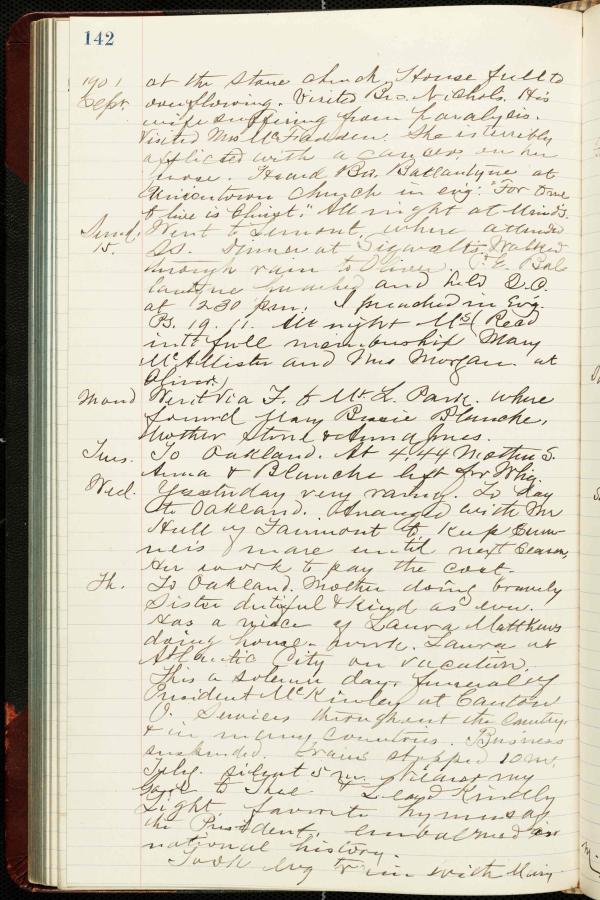 142
1901 at the stone church. House full to
Sept. overflowing. Visited Bro. Nichols. His
wife suffering from paralysis.
Visited Mrs McFadden. She is terribly
afflicted with a cancer on her
nose. Heard Bro. Ballantyne at
Uniontown church in evg. "For to me
to live is Christ." All night at
Sund. Went to Lemont, where attended
15. SS. Dinner at Walked
through rain to Oliver. P.E. Bal
lantyne preached and held Q.C.
at 230 p.m. I preached in Evg.
Ps. 19. 11. at night (Read
into full membership Mary
McAllister and Mrs Morgan. at
Oliver.)
Mond Went via F. to Mt. L. Park. where
found Mary Bessie Blanche,
Mother Stone & Anna Jones.
Tues. To Oakland. At 4.44 Mother S.
Anna & Blanche left for Whg.
Wed. Yesterday very rainy. To day
to Oakland. Arranged with Mr
Hull of Fairmont to keep
mare until next season,
Her work to pay the cost.
Th. To Oakland. Mother doing bravely
Sister dutiful & kind as ever.
Has a niece of Laura Matthews
doing house-work. Laura at
Atlantic City on vacation.
This a solemn day, funeral of
President McKinley at Canton
O. Services throughout the country,
& in many countries. Business
suspended. Trains stopped 10 m.
Teleg. silent 5 m. Nearer my
God to Thee & Lead Kindly
Light favorite hymns of
the President, embalmed in
national history.
Took evg train with Mary